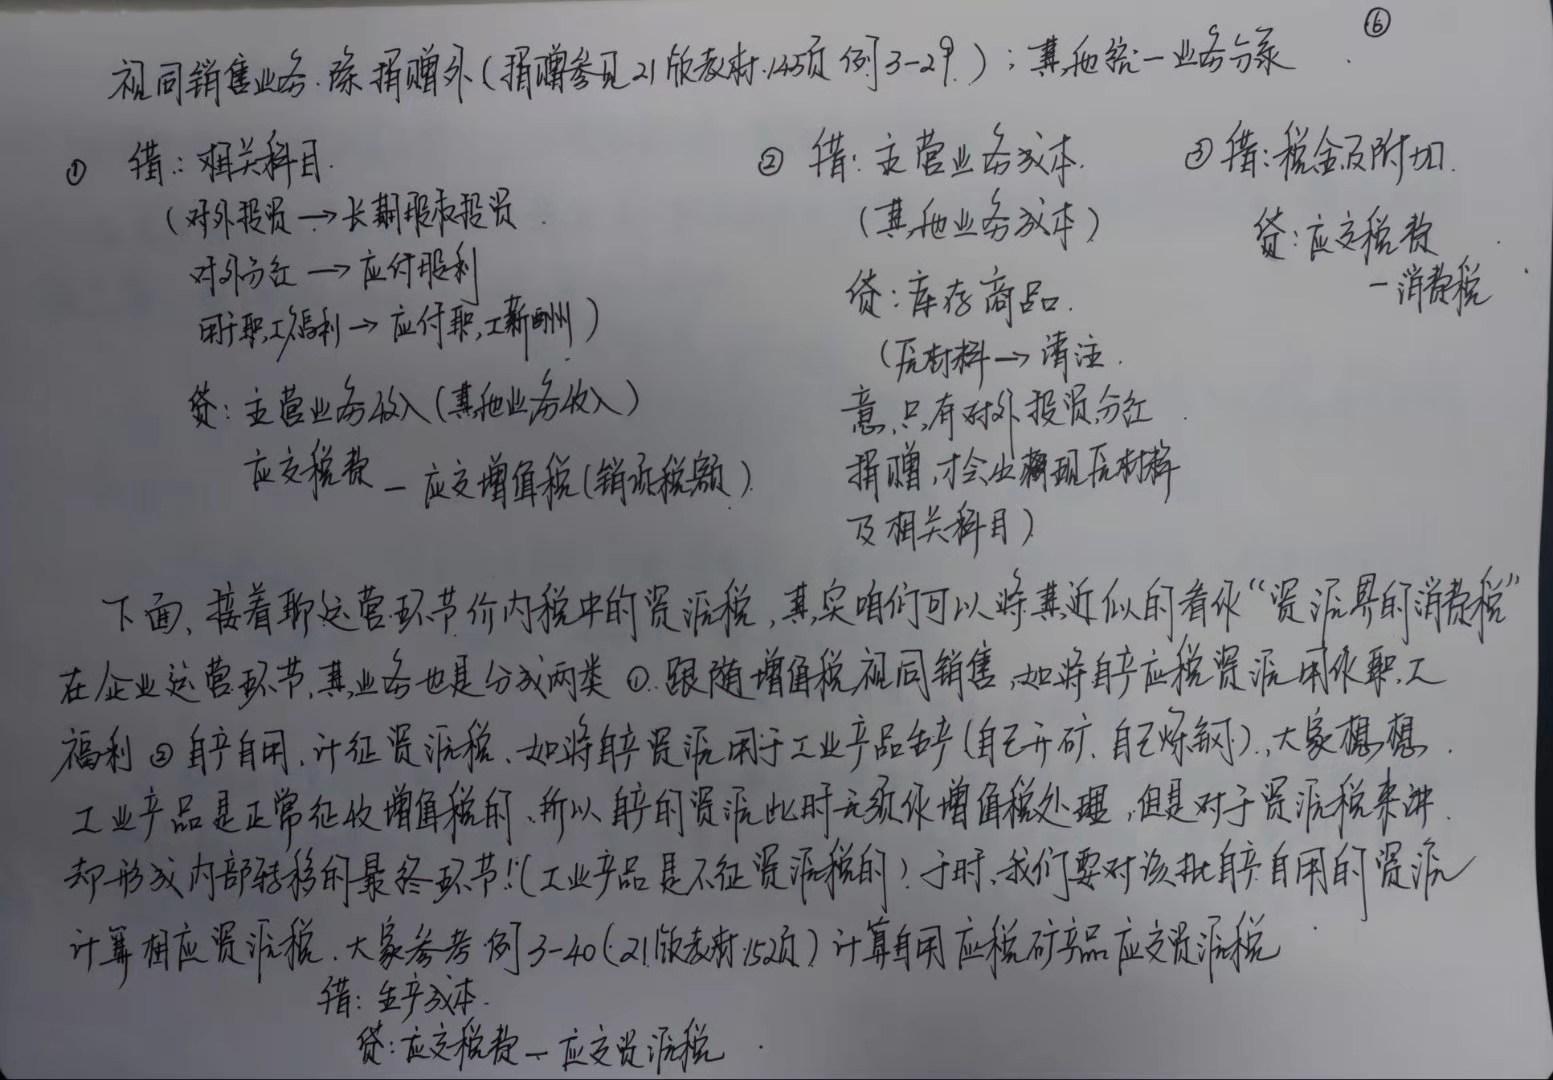 ⑥
视同销售业务.除捐赠外(捐赠参见21版教材.145页 例3-29.);其他统一业务分录
① 借:相关科目.
(对外投资→长期股权投资
对外分红→应付股利
用于职工福利→应付职工薪酬)
贷:主营业务收入(其他业务收入)
应交税费-应交增值税(销项税额)
② 借:主营业务成本.
(其他业务成本)
贷:库存商品.
(原材料→请注.
意,只有对外投资分红
捐赠,才会出现原材料
及相关科目)
③ 借:税金及附加.
贷:应交税费
-消费税
下面,接着聊运营环节价内税中的资源税,其实咱们可以将其近似的看作“资源界的消费税”
在企业运营环节,其业务也是分成两类 ①.跟随增值税视同销售,如将自产应税资源用作职工
福利 ② 自产自用,计征资源税、如将自产资源用于工业产品生产(自己开矿、自己炼钢).大家想想.
工业产品是正常征收增值税的、所以自产的资源此时无须作增值税处理,但是对于资源税来讲.
却形成内部转移的最终环节!(工业产品是不征资源税的)于时、我们要对该批自产自用的资源
计算相应资源税.大家参考例3-40(21版教材.152页)计算自用应税矿产品应交资源税
借:生产成本.
贷:应交税费-应交资源税.